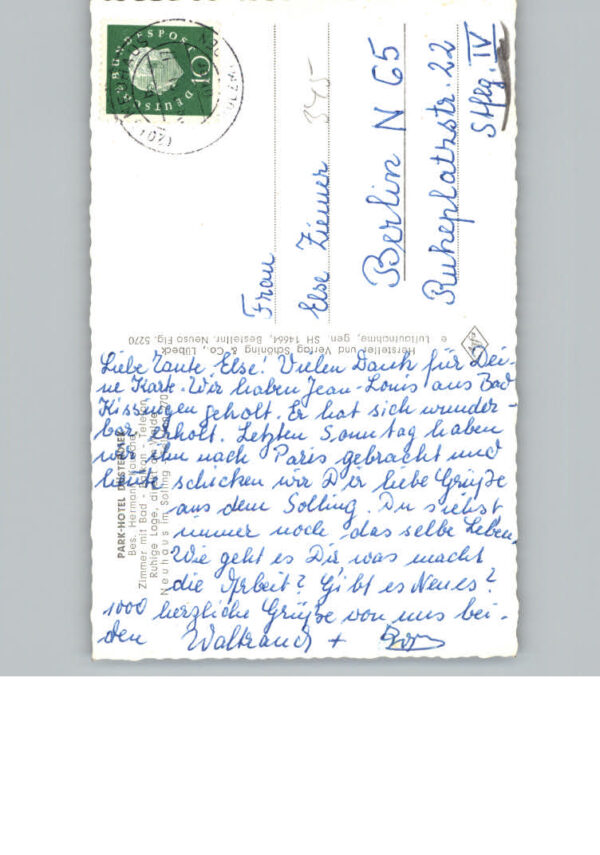 DEUTSCHE BUNDESPOST
10
345
Frau
Else Ziemer
Berlin N 65
Ruheplatzstr. 22
Stflg. IV
Hersteller und Verlag Schöning & Co., Lübeck
e Luftaufnahme, gen. SH 14664, Bestellnr. Neuso Flg. 5270
PARK-HOTEL
Bes. Hermann
Zimmer mit Bad - Balkon - Telefon
Ruhige Lage, direkt am Walde
Neuhaus im Solling
Liebe Tante Else! Vielen Dank für Dei-
ne Karte. Wir haben Jean-Louis aus Bad
Kissingen geholt. Er hat sich wunder-
bar erholt. Letzten Sonntag haben
wir ihn nach Paris gebracht und
heute schicken wir Dir liebe Grüße
aus dem Solling. Du siehst
immer noch das selbe Leben.
Wie geht es Dir was macht
die Arbeit? Gibt es Neues?
1000 herzliche Grüße von uns bei-
den Waltraud +